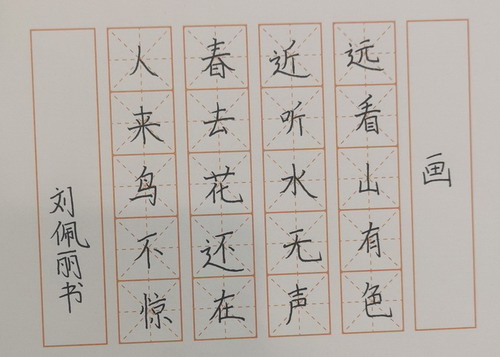 画
远看山有色
近听水无声
春去花还在
人来鸟不惊
刘佩丽书